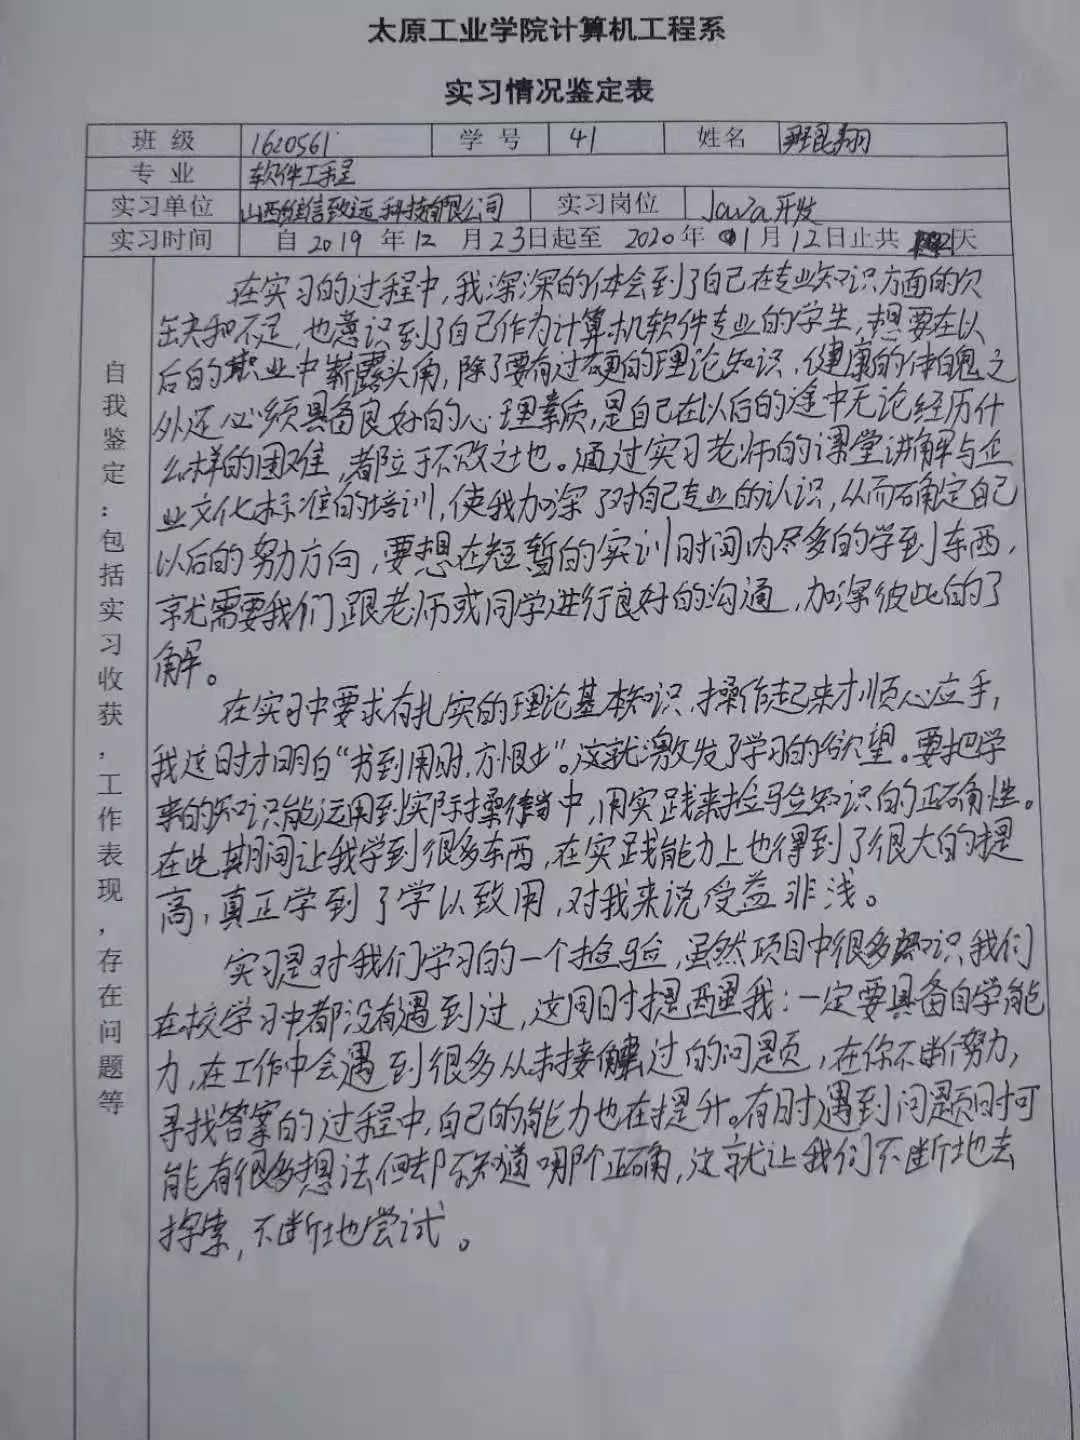 太原工业学院计算机工程系
实习情况鉴定表
班级 1620561 学号 41 姓名 昆翔
专业 软件工程
实习单位 山西维信致远科技有限公司 实习岗位 Java开发
实习时间 自2019年12月23日起至2020年01月12日止共 天
自我鉴定：包括实习收获，工作表现，存在问题等
在实习的过程中，我深深的体会到了自己在专业知识方面的欠
缺和不足，也意识到了自己作为计算机软件专业的学生，想要在以
后的职业中崭露头角，除了要有过硬的理论知识，健康的体魄之
外还必须具备良好的心理素质，是自己在以后的途中无论经历什
么样的困难，都位于不败之地。通过实习老师的课堂讲解与企
业文化标准的培训，使我加深了对自己专业的认识，从而确定自己
以后的努力方向，要想在短暂的实训时间内尽多的学到东西，
就需要我们跟老师或同学进行良好的沟通，加深彼此的了
解。
在实习中要求有扎实的理论基本知识，操作起来才顺心应手，
我这时才明白“书到用时，方恨少”。这就激发了学习的欲望。要把学
来的知识能运用到实际操作当中，用实践来捡验知识的正确性。
在此期间让我学到很多东西，在实践能力上也得到了很大的提
高，真正学到了学以致用，对我来说受益非浅。
实习是对我们学习的一个捡验，虽然项目中很多知识我们
在校学习中都没有遇到过，这同时提醒我：一定要具备自学能
力，在工作中会遇到很多从未接触过的问题，在你不断努力，
寻找答案的过程中，自己的能力也在提升。有时遇到问题时可
能有很多想法但却不知道哪个正确，这就让我们不断地去
探索，不断地尝试。